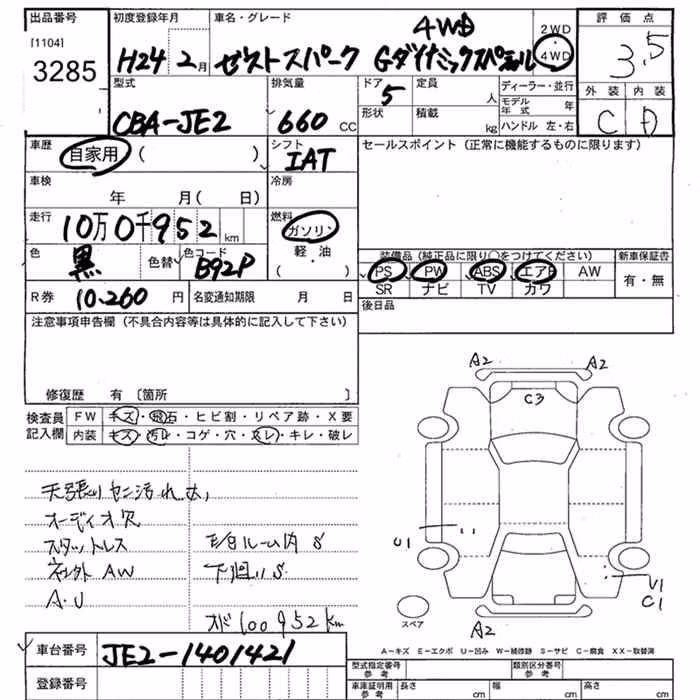 出品番号 初度登録年月 車名・グレード 評価点
[1104]
3285
H24 2月 ゼストスパーク Gダイナミックスペシャル
4WD
2WD
・
4WD
3.5
外装 内装
C D
型式 排気量 ドア 定員 ディーラー・並行
CBA-JE2 660 CC 5 人 モデル年式 年
形状 積載 kg ハンドル 左・右
車歴 自家用 ( ) シフト IAT セールスポイント (正常に機能するものに限ります)
車検 年 月( 日) 冷房
走行 10万0千952 km 燃料 ガソリン
軽・油
色 黒 色替 色コード B92P
装備品 (純正品に限り○をつけてください) 新車保証書
PS PW ABS エアB AW 有・無
SR ナビ TV カワ
R券 10.260 円 名変通知期限 月 日 後日品
注意事項申告欄 (不具合内容等は具体的に記入して下さい)
修復歴 有 〔箇所 〕
検査員 FW キズ・飛石・ヒビ割・リペア跡・X要
記入欄 内装 キズ・汚レ・コゲ・穴・スレ・キレ・破レ
A2 A2
C3
天張り 汚れ大
オーディオ欠
スタットレス ルーム内 S
社外 AW 下廻りS
A.U
オド 100952km
U1
V1
C1
スペア
A2
A-キズ E-エクボ U-凹み W-補修跡 S-サビ C-腐食 XX-取替済
車台番号 JE2-1401421
型式指定番号 参考 類別区分番号 参考
登録番号 車庫証明用 参考 長さ cm 幅 cm 高さ cm